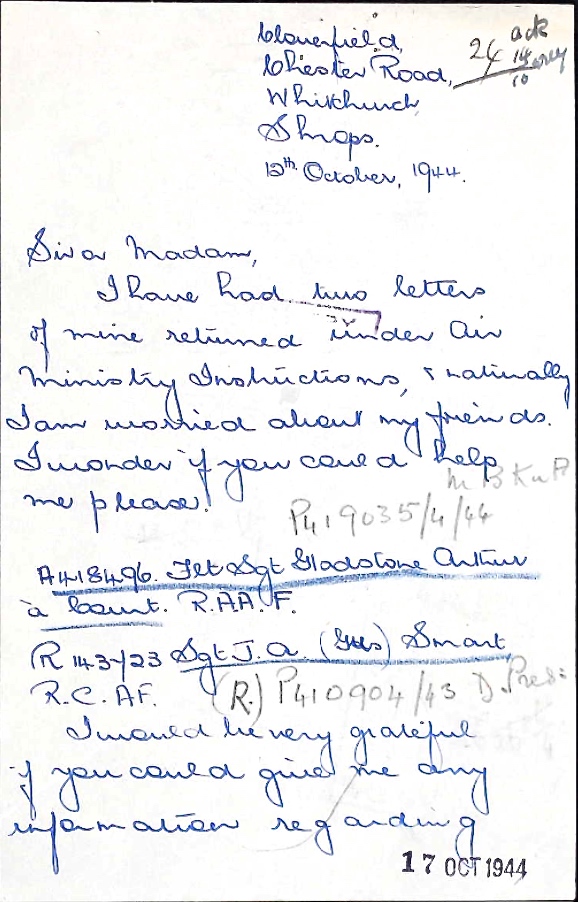 Cloverfield,
Chester Road,
Whitchurch,
Shrops.
12th October, 1944.
24 ack
10
Sir or Madam,
I have had two letters
of mine returned under Air
Ministry Instructions, & naturally
I am worried about my friends.
I wonder if you could help
me please!
P419035/4/44
A418496. Flt Sgt Gladstone Arthur
à Court. R.A.A.F.
R143723 Sgt J. A. (Gus) Smart,
R.C.A.F. (R.) P410904/43 D. Pres:
I would be very grateful
if you could give me any
information regarding
17 OCT 1944